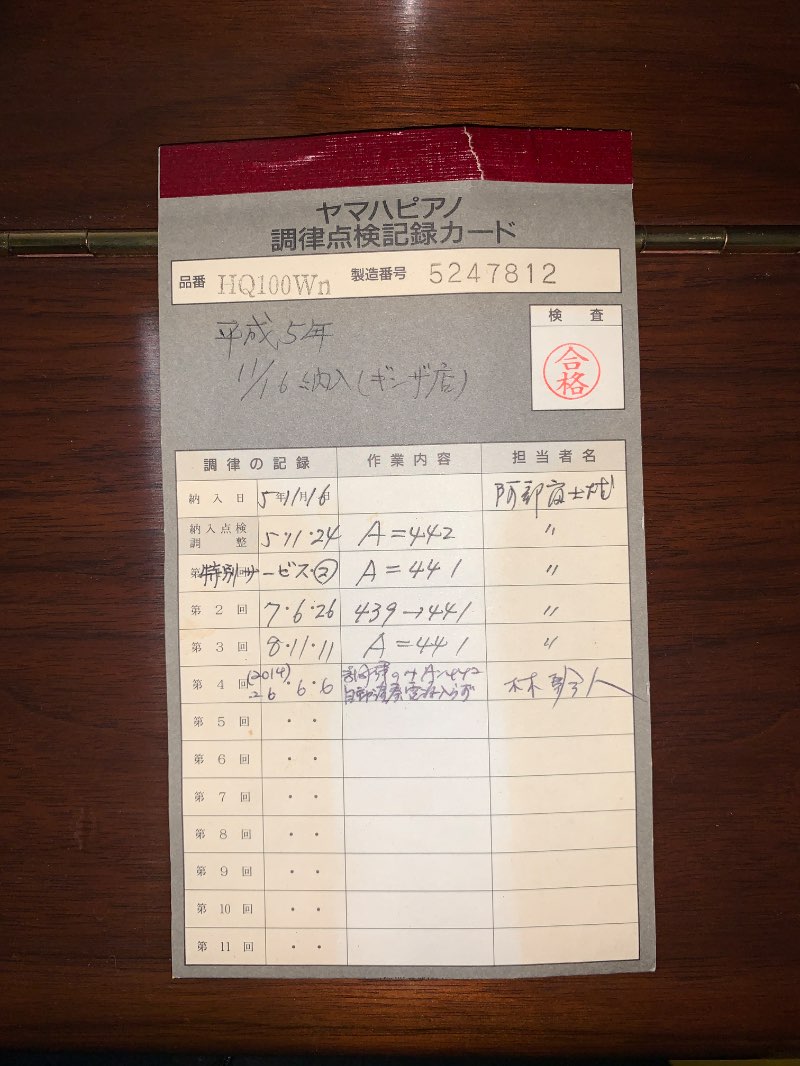 ヤマハピアノ
調律点検記録カード
品番 HQ100Wn 製造番号 5247812
平成5年
11/16納入(ギンザ店)
検査
合格
調律の記録 作業内容 担当者名
納入日 5年11月16日 阿部富士
納入点検調整 5・11・24 A=442 〃
特別サービス・② A=441 〃
第2回 7・6・26 439→441 〃
第3回 8・11・11 A=441 〃
第4回 (2014) 26・6・6 A=442 林
第5回 ・・
第6回 ・・
第7回 ・・
第8回 ・・
第9回 ・・
第10回 ・・
第11回 ・・